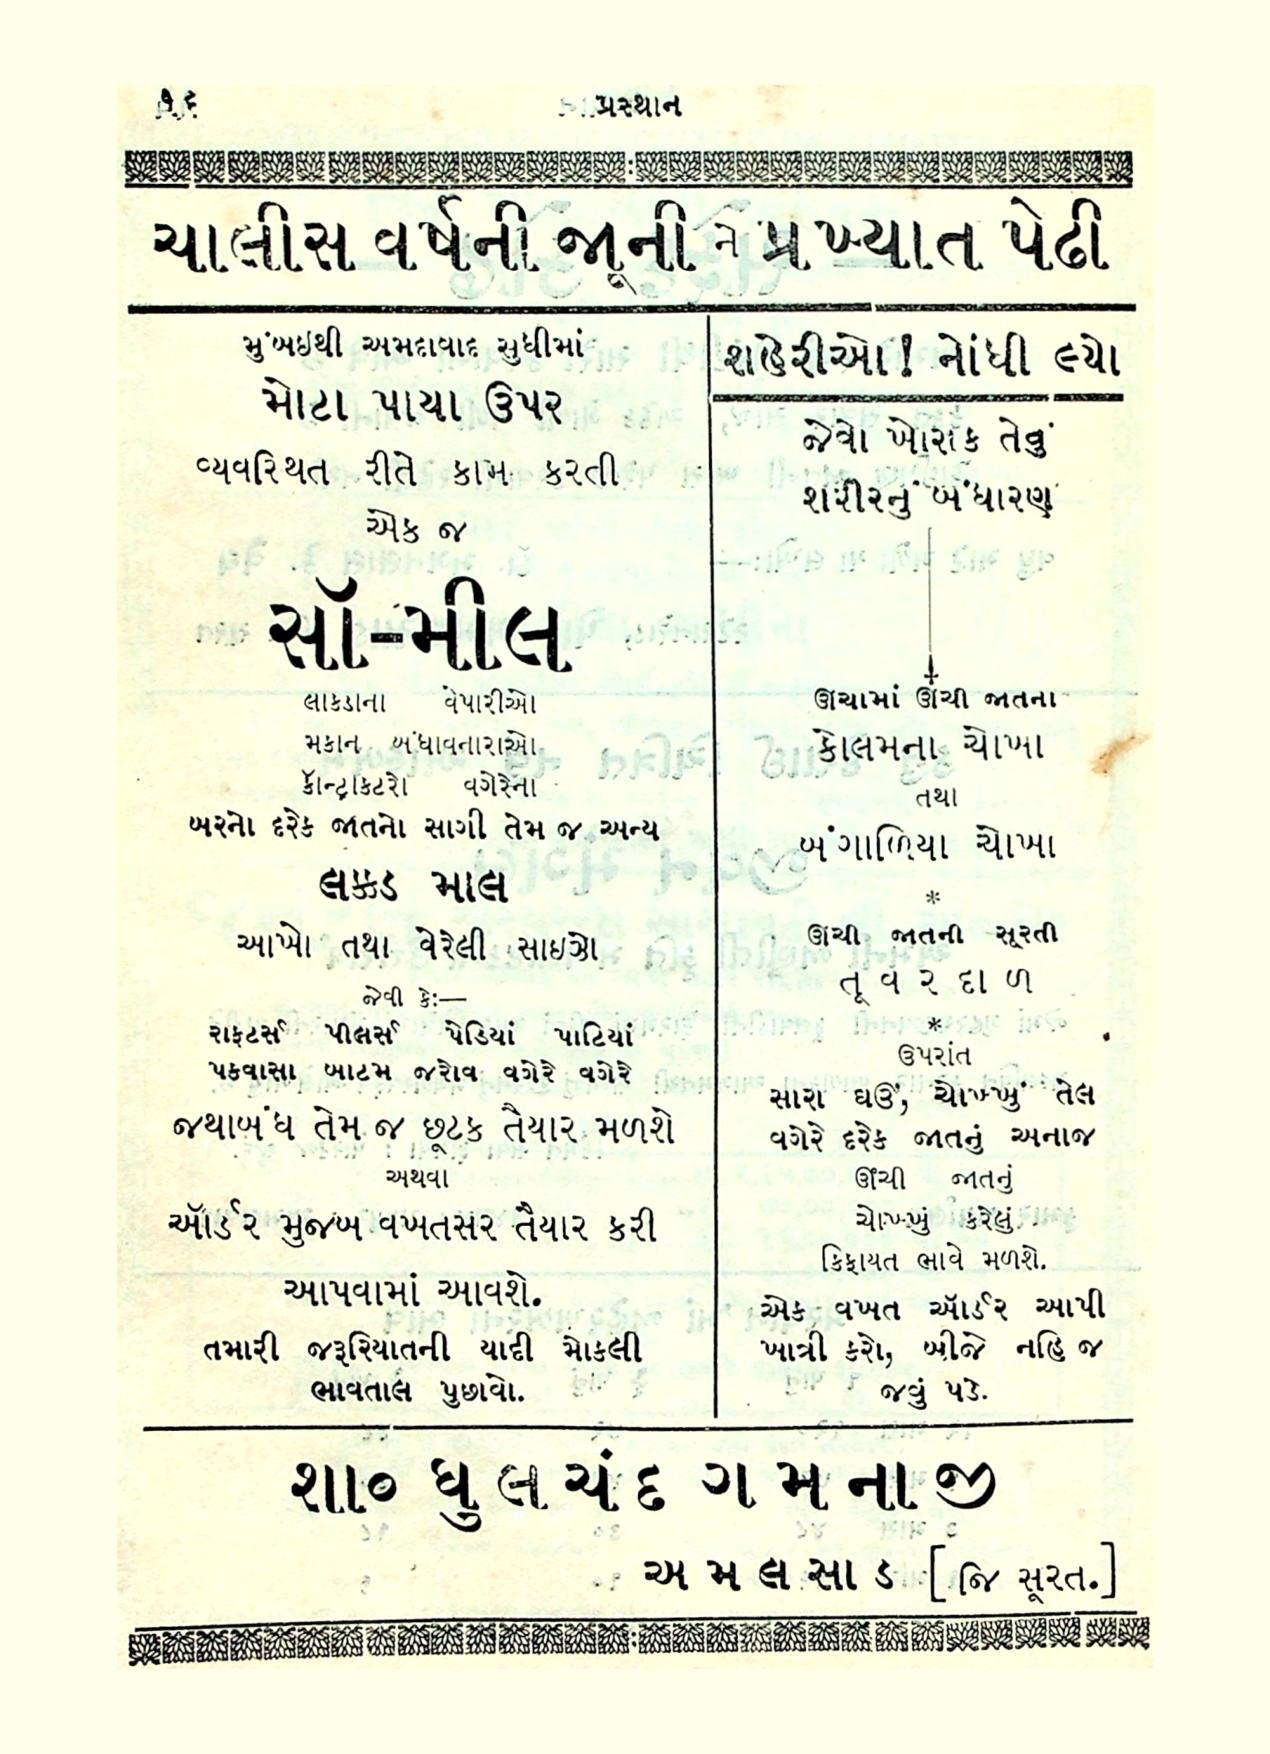 ૧૬
પ્રસ્થાન
ચાલીસ વર્ષની જૂની ને પ્રખ્યાત પેઢી
મુંબઇથી અમદાવાદ સુધીમાં
મોટા પાયા ઉપર
વ્યવસ્થિત રીતે કામ કરતી
એક જ
સૉ-મીલ
લાકડાના વેપારીઓ
મકાન બંધાવનારાઓ
કૉન્ટ્રાકટરો વગેરેના
બરનો દરેક જાતનો સાગી તેમ જ અન્ય
લક્કડ માલ
આખો તથા વેરેલી સાઇઝો
જેવી કેઃ—
રાફટર્સ પીલર્સ પેડિયાં પાટિયાં
પકવાસા બાટમ જરોવ વગેરે વગેરે
જથાબંધ તેમ જ છૂટક તૈયાર મળશે
અથવા
ઑર્ડર મુજબ વખતસર તૈયાર કરી
આપવામાં આવશે.
તમારી જરૂરિયાતની યાદી મોકલી
ભાવતાલ પુછાવો.
શહેરીઓ! નોંધી લ્યો
જેવો ખોરાક તેવું
શરીરનું બંધારણ
ઊચામાં ઊંચી જાતના
કોલમના ચોખા
તથા
બંગાળિયા ચોખા
*
ઊચી જાતની સૂરતી
તૂ વ ર દા ળ
*
ઉપરાંત
સારા ઘઉં, ચોખ્ખું તેલ
વગેરે દરેક જાતનું અનાજ
ઊંચી જાતનું
ચોખ્ખું કરેલું
કિફાયત ભાવે મળશે.
એક વખત ઑર્ડર આપી
ખાત્રી કરો, બીજે નહિ જ
જવું પડે.
શા૦ ધુલચંદ ગમનાજી
અ મ લ સા ડ [ જિ સૂરત. ]